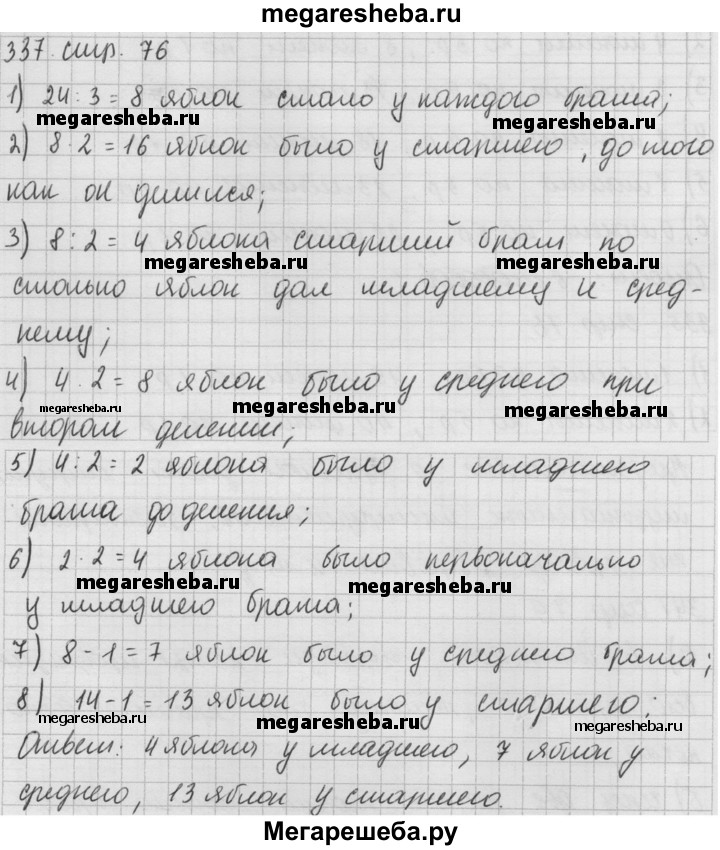 megaresheba.ru
337. стр. 76
1) 24 : 3 = 8 яблок стало у каждого брата;
megaresheba.ru megaresheba.ru
2) 8 · 2 = 16 яблок было у старшего, до того
как он делился;
3) 8 : 2 = 4 яблока старший брат по
megaresheba.ru megaresheba.ru
столько яблок дал младшему и сред-
нему;
4) 4 · 2 = 8 яблок было у среднего при
megaresheba.ru megaresheba.ru megaresheba.ru
втором делении;
5) 4 : 2 = 2 яблока было у младшего
брата до деления;
6) 2 · 2 = 4 яблока было первоначально
megaresheba.ru megaresheba.ru
у младшего брата;
7) 8 - 1 = 7 яблок было у среднего брата;
8) 14 - 1 = 13 яблок было у старшего;
megaresheba.ru megaresheba.ru megaresheba.ru
Ответ: 4 яблока у младшего, 7 яблок у
среднего, 13 яблок у старшего.
Мегарешеба.ру